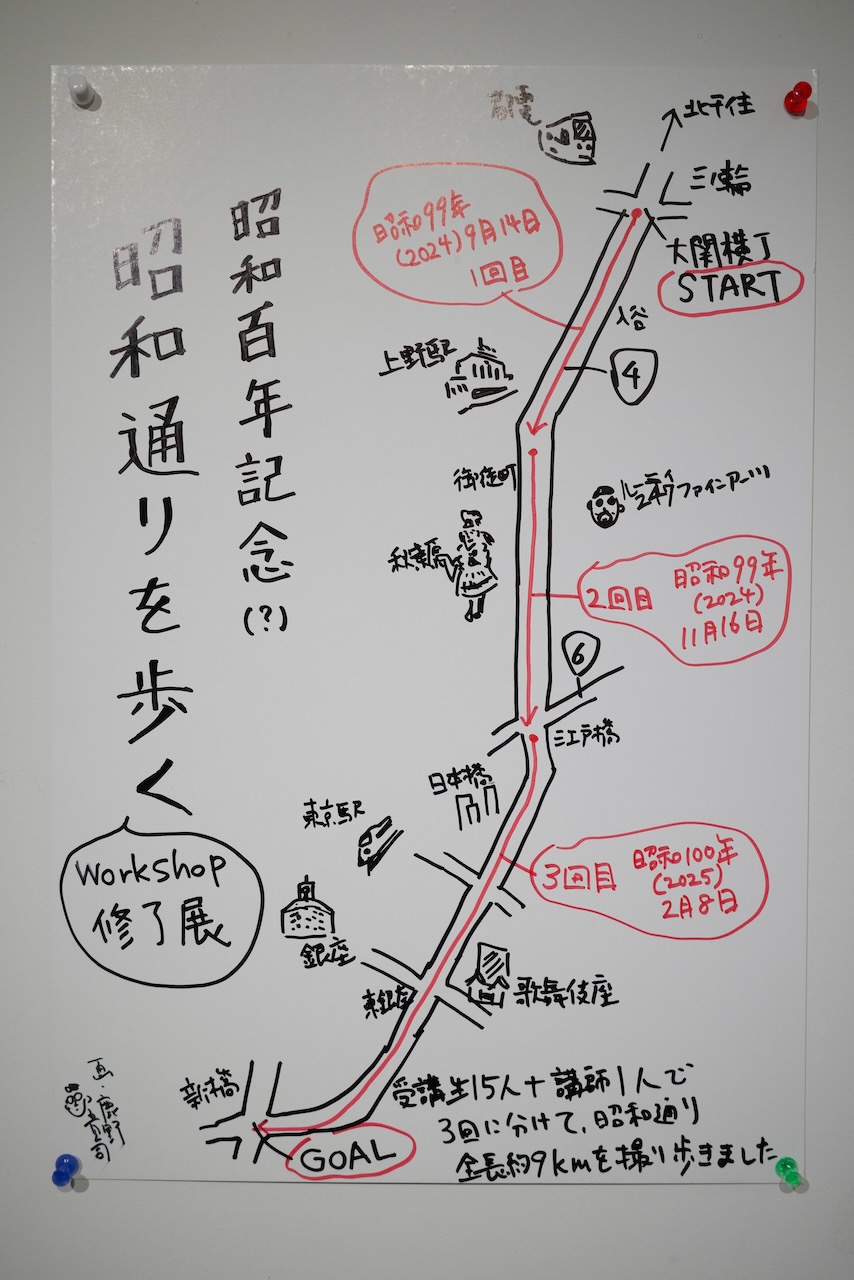 昭和百年記念(?)
昭和通りを歩く
Workshop
修了展
都電
北千住
三ノ輪
大関横丁
START
昭和99年
(2024)9月14日
1回目
入谷
4
上野駅
御徒町
ファインアーツ
秋葉原
2回目
昭和99年
(2024)
11月16日
6
江戸橋
日本橋
東京駅
3回目
昭和100年
(2025)
2月8日
銀座
東銀座
歌舞伎座
新橋
GOAL
受講生15人+講師1人で
3回に分けて、昭和通り
全長約9kmを撮り歩きました
画・鹿野
貴司